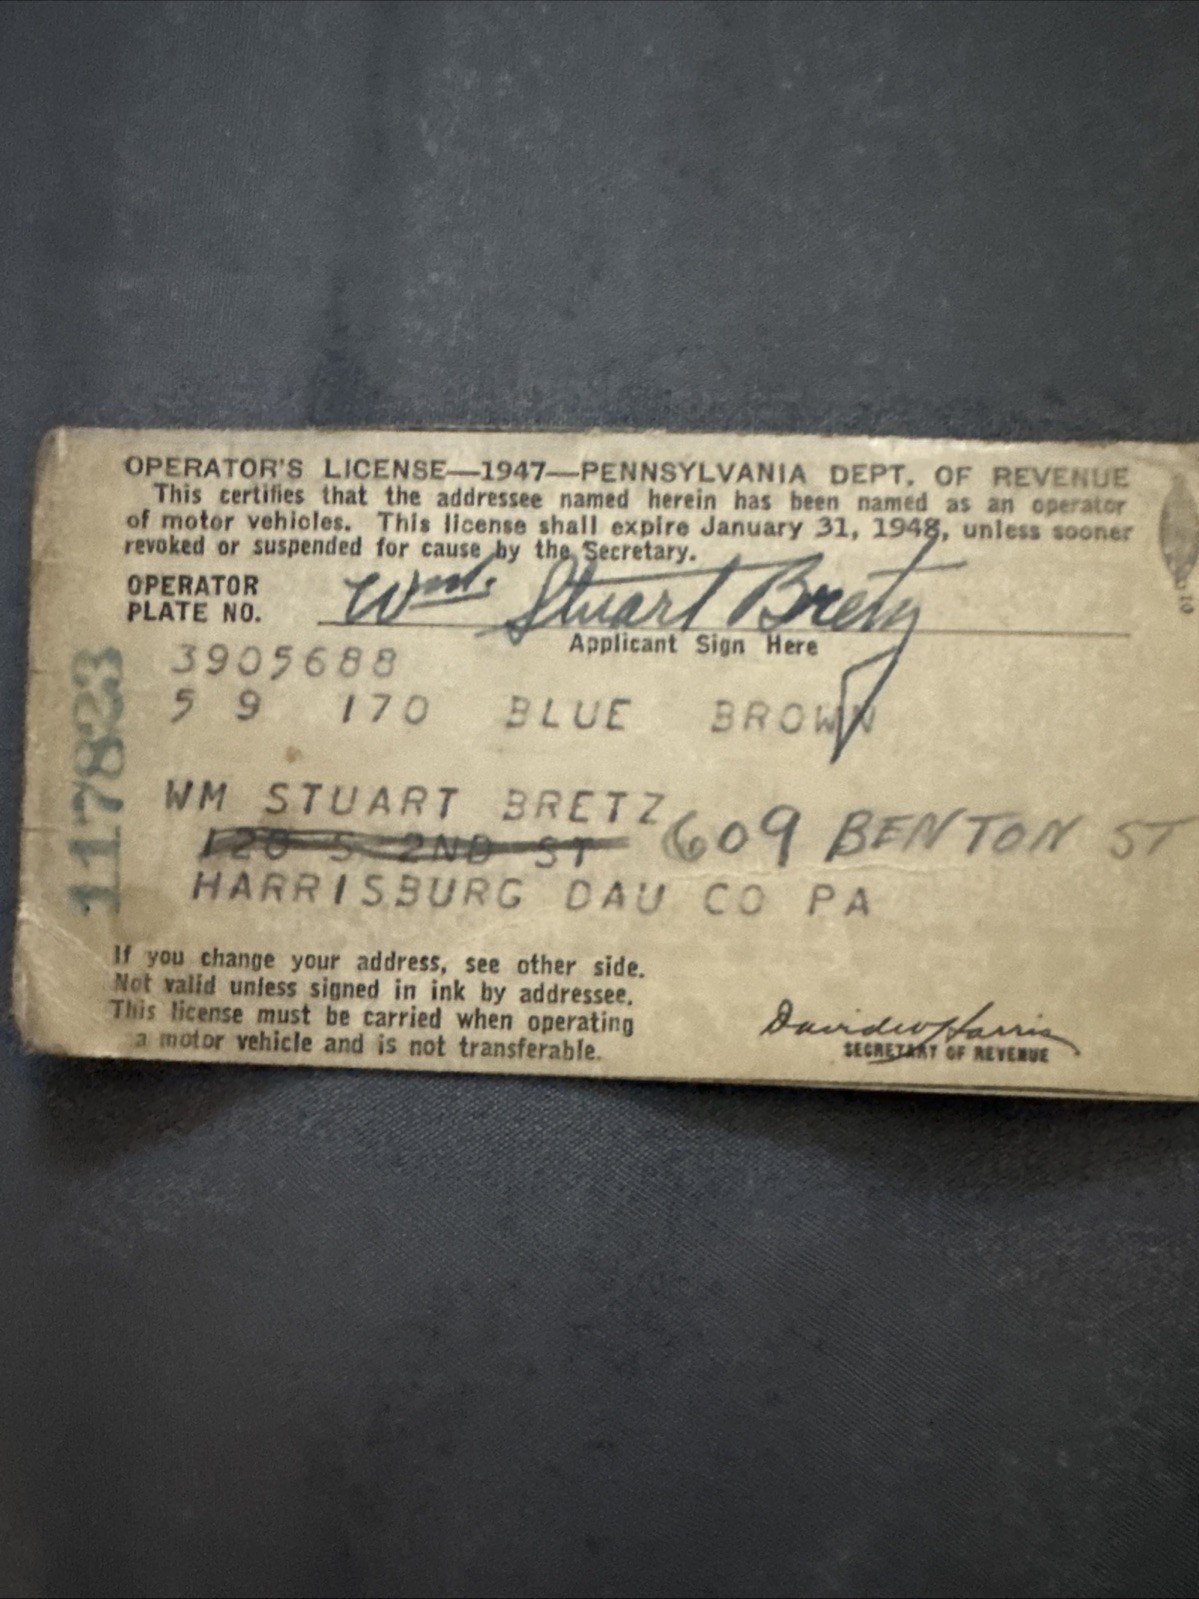 OPERATOR'S LICENSE—1947—PENNSYLVANIA DEPT. OF REVENUE
This certifies that the addressee named herein has been named as an operator
of motor vehicles. This license shall expire January 31, 1948, unless sooner
revoked or suspended for cause by the Secretary.
OPERATOR
PLATE NO.
Wm. Stuart Bretz
Applicant Sign Here
3905688
5 9 170 BLUE BROWN
117823
WM STUART BRETZ
128 S 2ND ST 609 BENTON ST
HARRISBURG DAU CO PA
If you change your address, see other side.
Not valid unless signed in ink by addressee.
This license must be carried when operating
a motor vehicle and is not transferable.
David W Harris
SECRETARY OF REVENUE